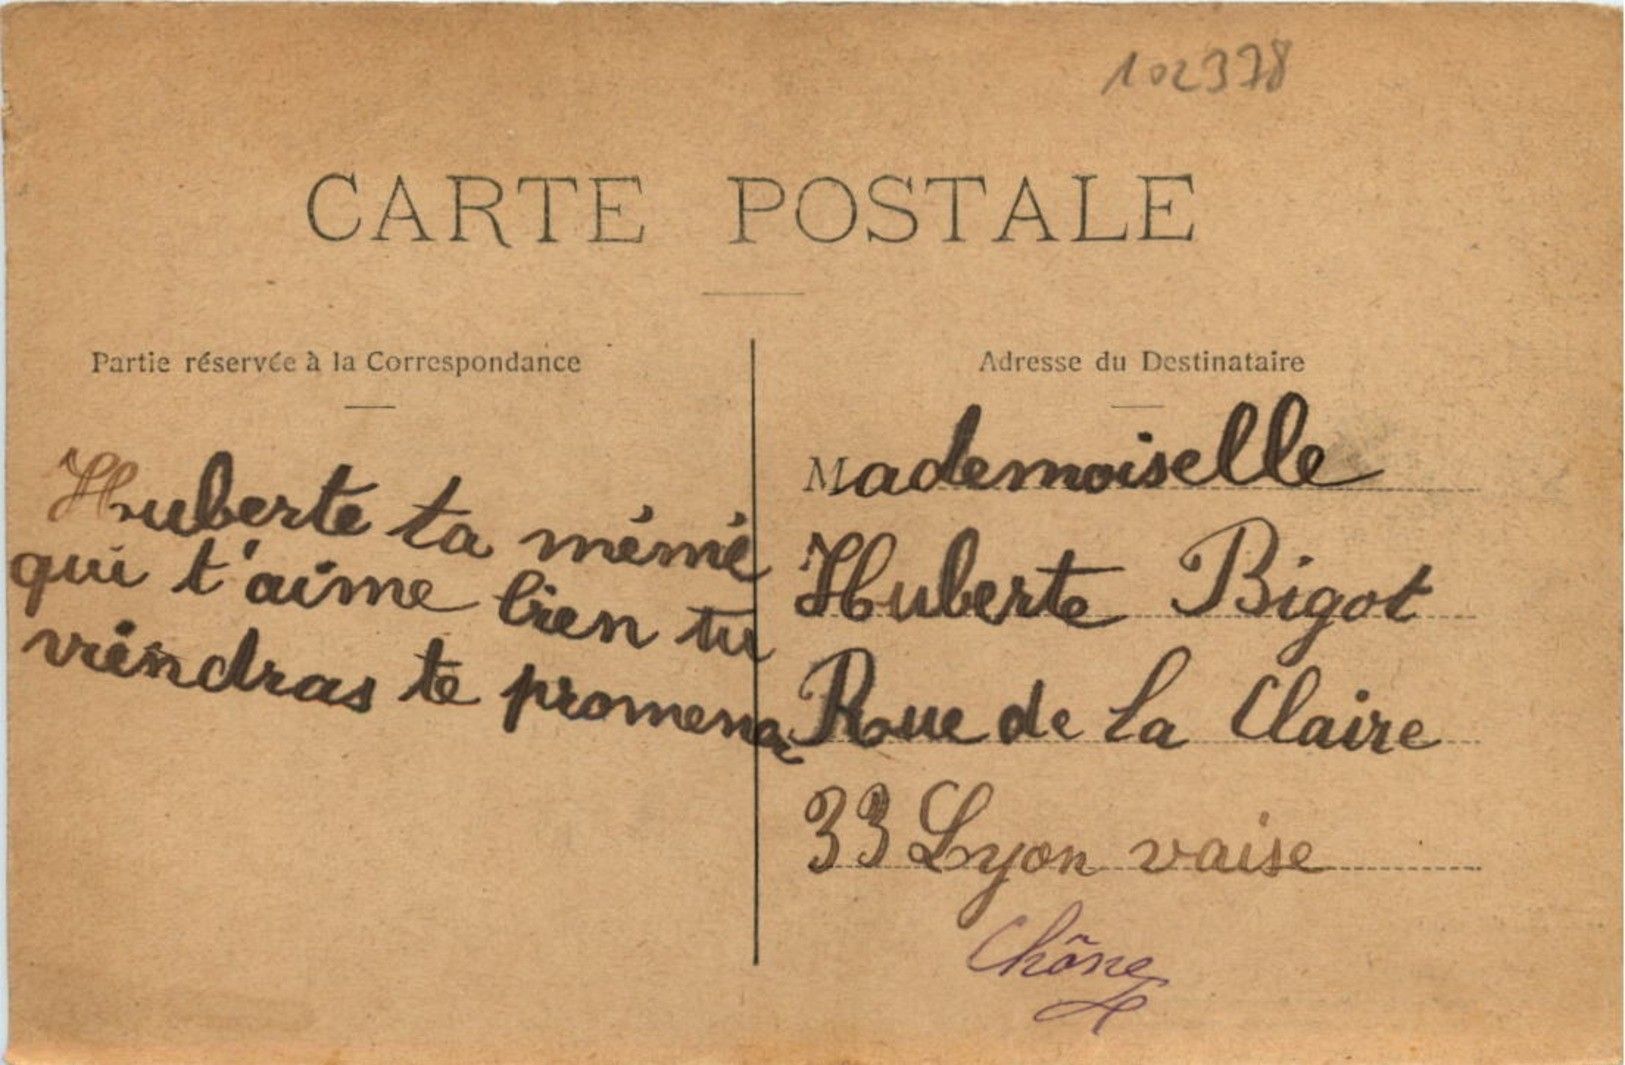 102378
CARTE POSTALE
Partie réservée à la Correspondance
Huberte ta mémé
qui t'aime bien tu
viendras te promener
Adresse du Destinataire
Mademoiselle
Huberte Bigot
Rue de la Claire
33 Lyon vaise
Rhône